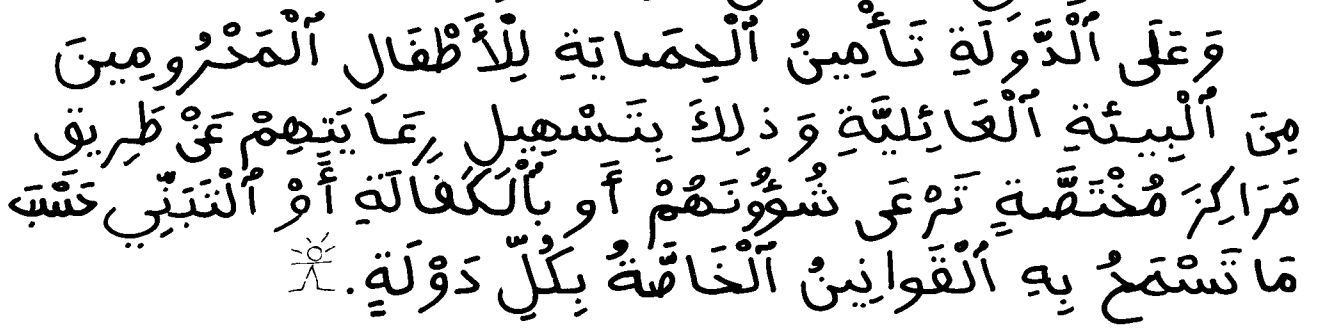 وَعَلَى ٱلْدَّوَلَةِ تَأْمِينُ ٱلْحِمَايَةِ لِلْأَطْفَالِ ٱلْمَحْرُومِينَ
مِنَ ٱلْبِيئَةِ ٱلْعَائِلِيَّةِ وَذلِكَ بِتَسْهِيلِ رِعَايَتِهِمْ عَنْ طَرِيق
مَرَاكِزَ مُخْتَصَّةٍ تَرْعَى شُؤُونَهُمْ أَو بِٱلْكَفَالَةِ أَوْ ٱلْتَبَنِّي حَسْبَ
مَا تَسْمَحُ بِهِ ٱلْقَوانِينُ ٱلْخَاصَّةُ بِكُلِّ دَوْلَةٍ.